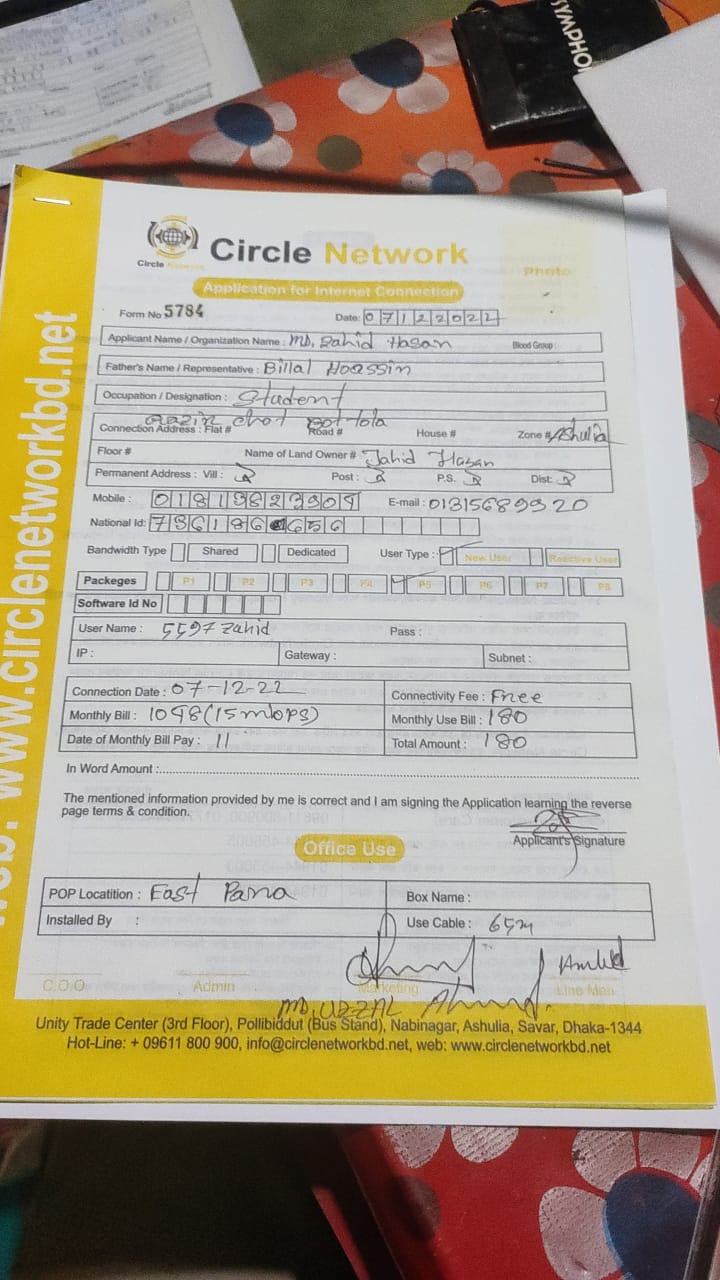 SYMPHO
web: www.circlenetworkbd.net
Circle Network
Circle Network
Photo
Application for Internet Connection
Form No 5784
Date: 07122022
Applicant Name / Organization Name : MD, Zahid Hasan Blood Group :
Father's Name / Representative : Billal Hoassin
Occupation / Designation : Student
Connection Address : Flat # Road # House # Zone # Ashulia
Floor # Name of Land Owner # Jahid Hasan
Permanent Address : Vill : Post : P.S. Dist:
Mobile : E-mail : 01315689920
National Id:
Bandwidth Type Shared Dedicated User Type : New User Reactive User
Packeges P1 P2 P3 P4 P5 P6 P7 P8
Software Id No
User Name : 5597zahid Pass :
IP : Gateway : Subnet :
Connection Date : 07-12-22 Connectivity Fee : Free
Monthly Bill : 1098(15mbps) Monthly Use Bill : 180
Date of Monthly Bill Pay : 11 Total Amount : 180
In Word Amount :
The mentioned information provided by me is correct and I am signing the Application learning the reverse
page terms & condition.
Applicant's Signature
Office Use
POP Locatition : East Para Box Name :
Installed By : Use Cable : 65m
C.O.O Admin Marketing Line Men
MD, UZZAL Ahmed.
Unity Trade Center (3rd Floor), Pollibiddut (Bus Stand), Nabinagar, Ashulia, Savar, Dhaka-1344
Hot-Line: + 09611 800 900, info@circlenetworkbd.net, web: www.circlenetworkbd.net